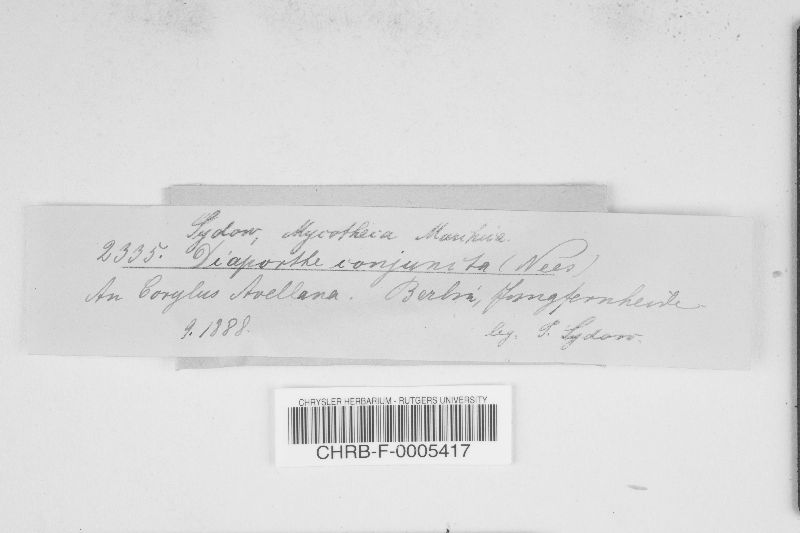 Sydow, Mycotheca Marchica.
2335. Diaporthe conjuncta (Nees)
An Corylus Avellana. Berlin, Jungfernheide
9.1888. leg. P. Sydow.
CHRYSLER HERBARIUM - RUTGERS UNIVERSITY
CHRB-F-0005417